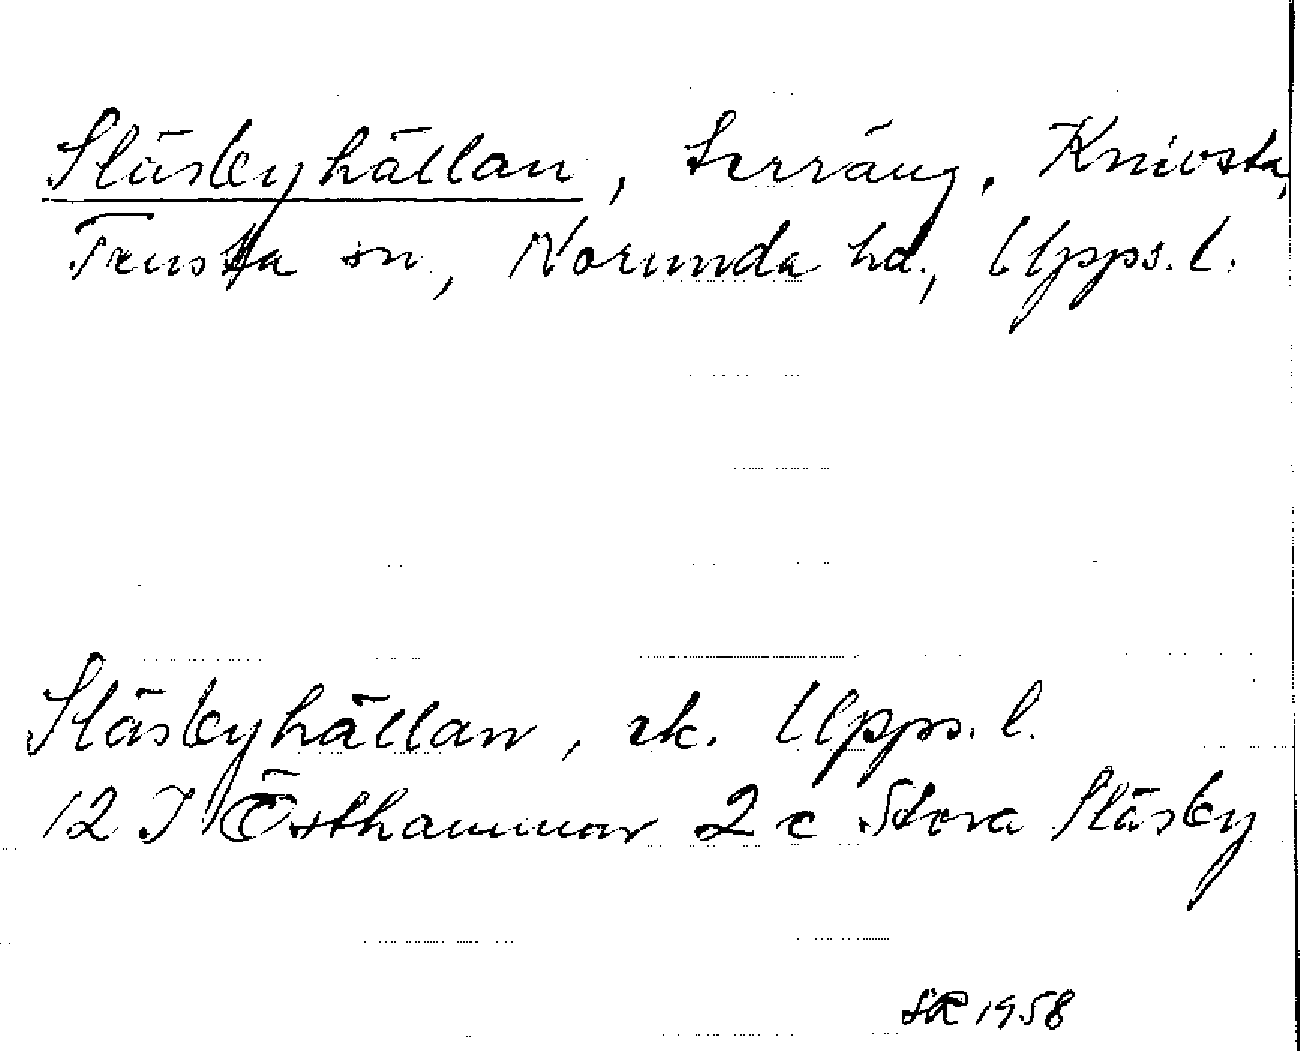 Släsbyhällan, terräng. Knivsta,
Tensta sn, Norunda hd., Upps. l.
Släsbyhällan, ek. Upps. l.
12 I Östhammar 2 c Stora Släsby
SR 1958